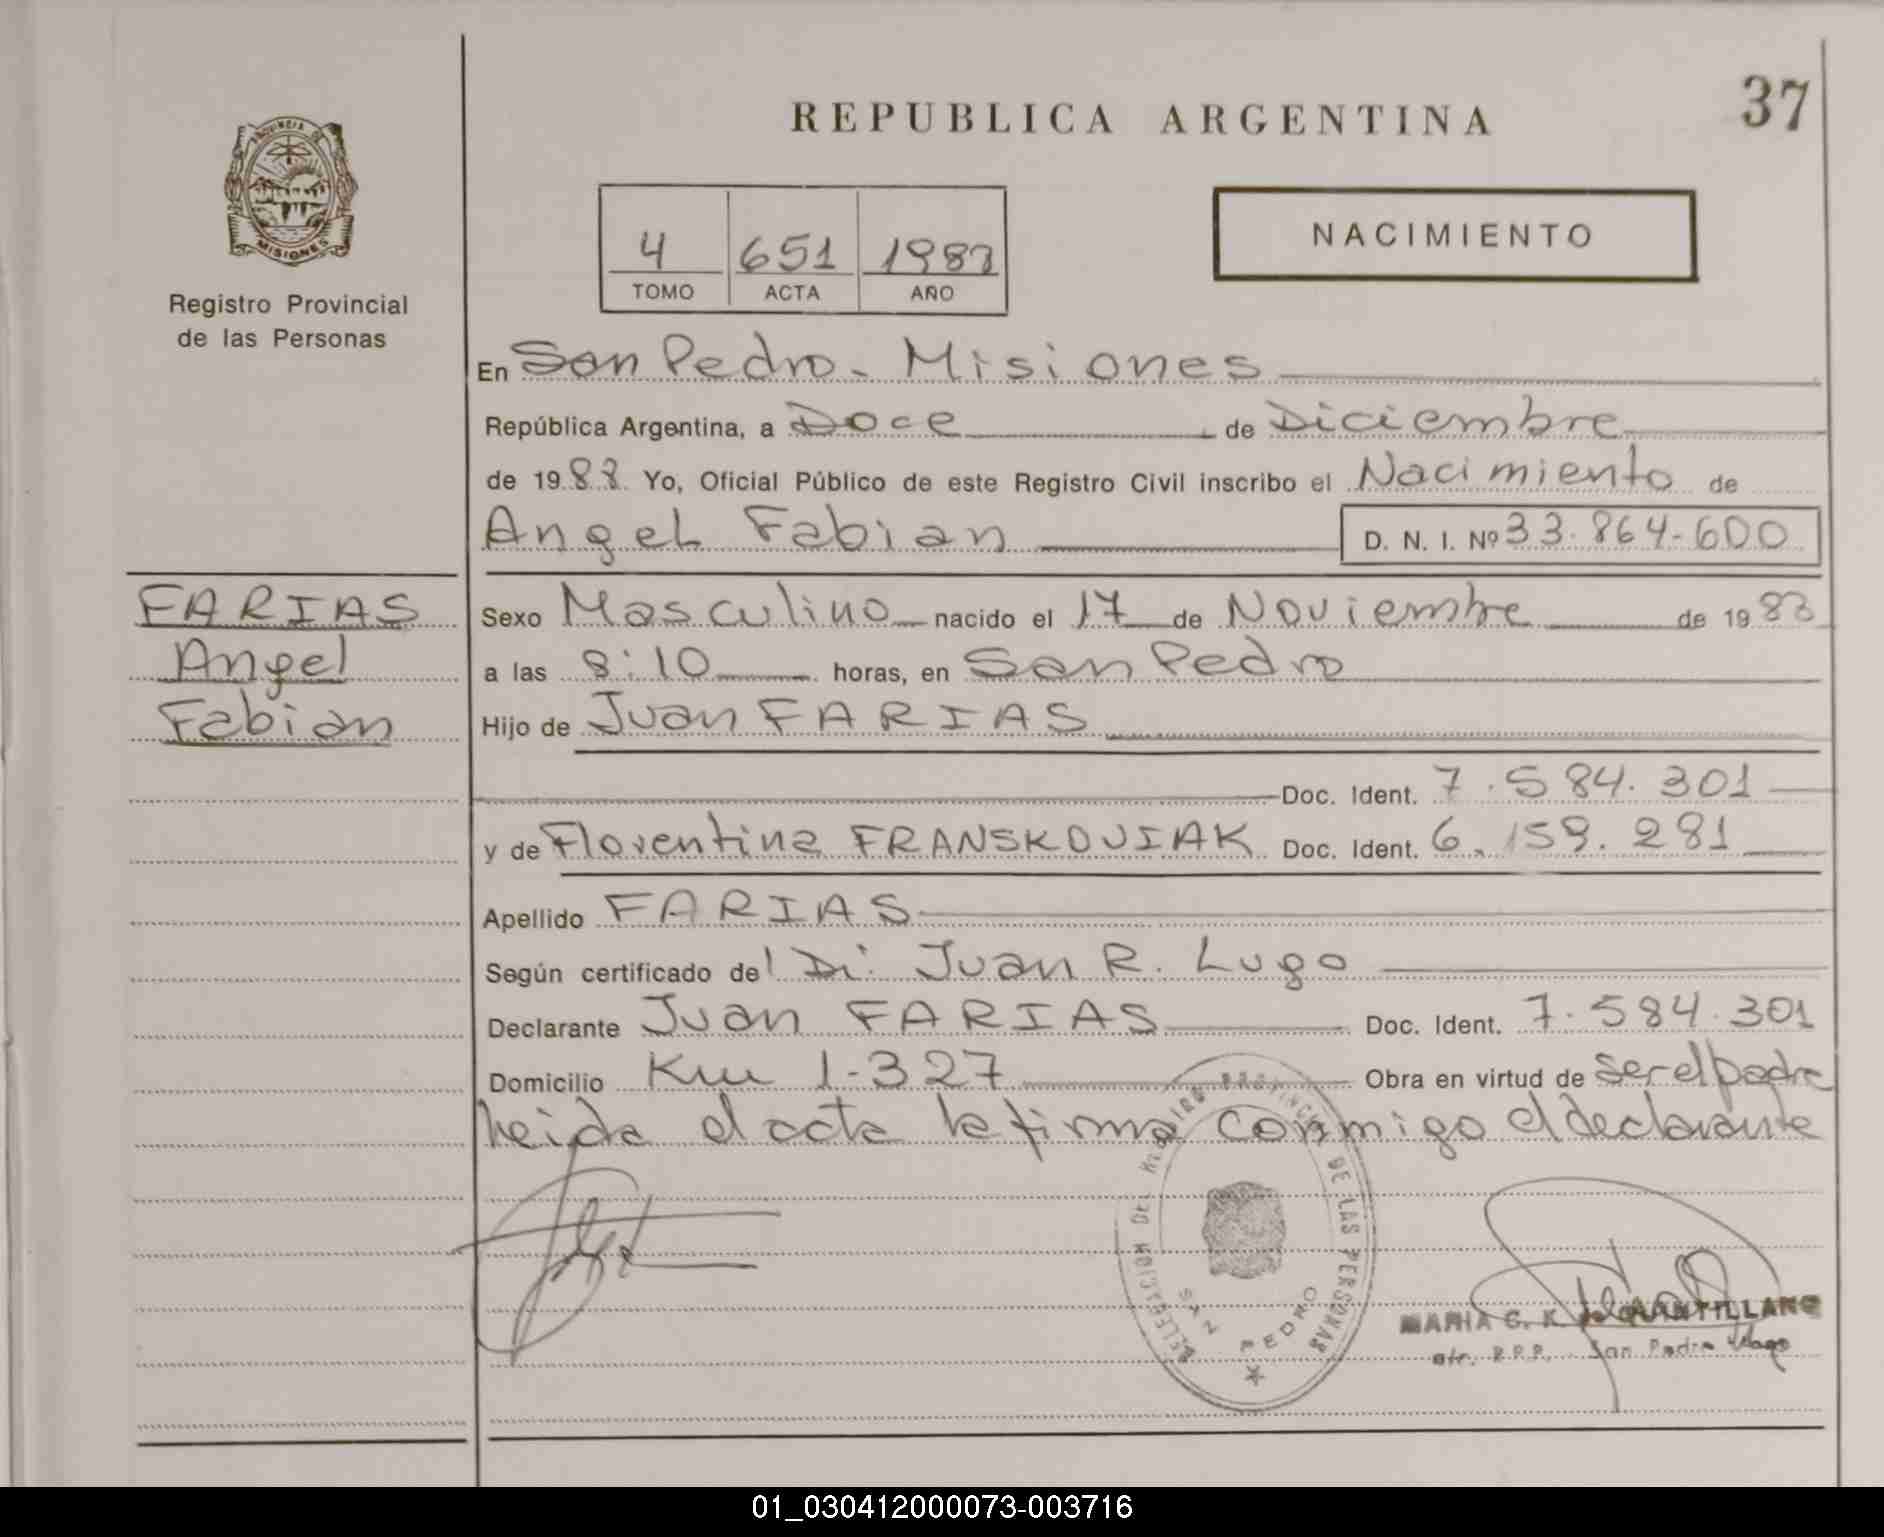 REPUBLICA ARGENTINA
37
PROVINCIA DE
MISIONES
Registro Provincial
de las Personas
4 651 1988
TOMO ACTA AÑO
NACIMIENTO
En San Pedro - Misiones
República Argentina, a Doce de Diciembre
de 1988. Yo, Oficial Público de este Registro Civil inscribo el Nacimiento de
Angel Fabian D. N. I. Nº 33.864-600
FARIAS
Angel
Fabian
Sexo Masculino nacido el 17 de Noviembre de 1988
a las 8:10 horas, en San Pedro
Hijo de Juan FARIAS
Doc. Ident. 7.584.301
y de Florentina FRANSKOVIAK Doc. Ident. 6.159.281
Apellido FARIAS
Según certificado del Dr. Juan R. Lugo
Declarante Juan FARIAS Doc. Ident. 7.584.301
Domicilio Km 1-327 Obra en virtud de ser el padre
leida el acta la firma conmigo el declarante
DELEGACION DEL REGISTRO PROVINCIAL DE LAS PERSONAS
SAN PEDRO
MARIA G. K. de QUINTILLANO
R.P.P. San Pedro
01_030412000073-003716